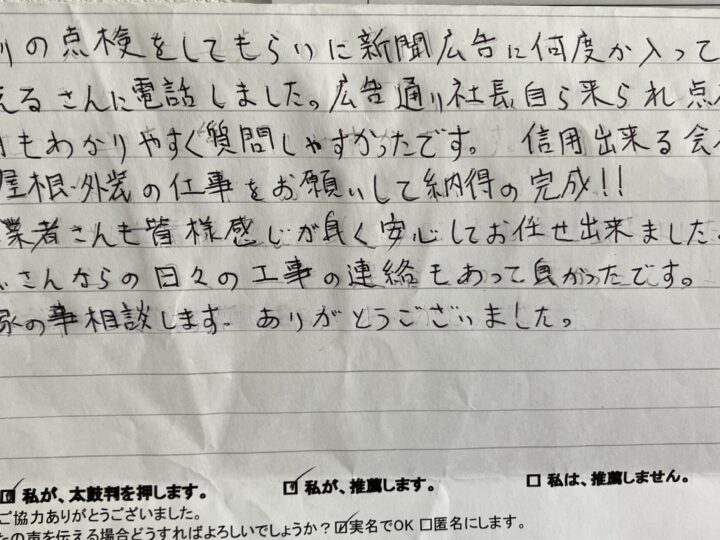 りの点検をしてもらいに新聞広告に何度か入って
えるさんに電話しました。広告通り社長自ら来られ点
もわかりやすく質問しやすかったです。 信用出来る会
屋根・外装の仕事をお願いして納得の完成!!
業者さんも皆様感じが良く安心してお任せ出来ました。
さんならの日々の工事の連絡もあって良かったです。
家の事相談します。ありがとうございました。
☑ 私が、太鼓判を押します。 ☑ 私が、推薦します。 □ 私は、推薦しません。
ご協力ありがとうございました。
たの声を伝える場合どうすればよろしいでしょうか？☑実名でOK □匿名にします。